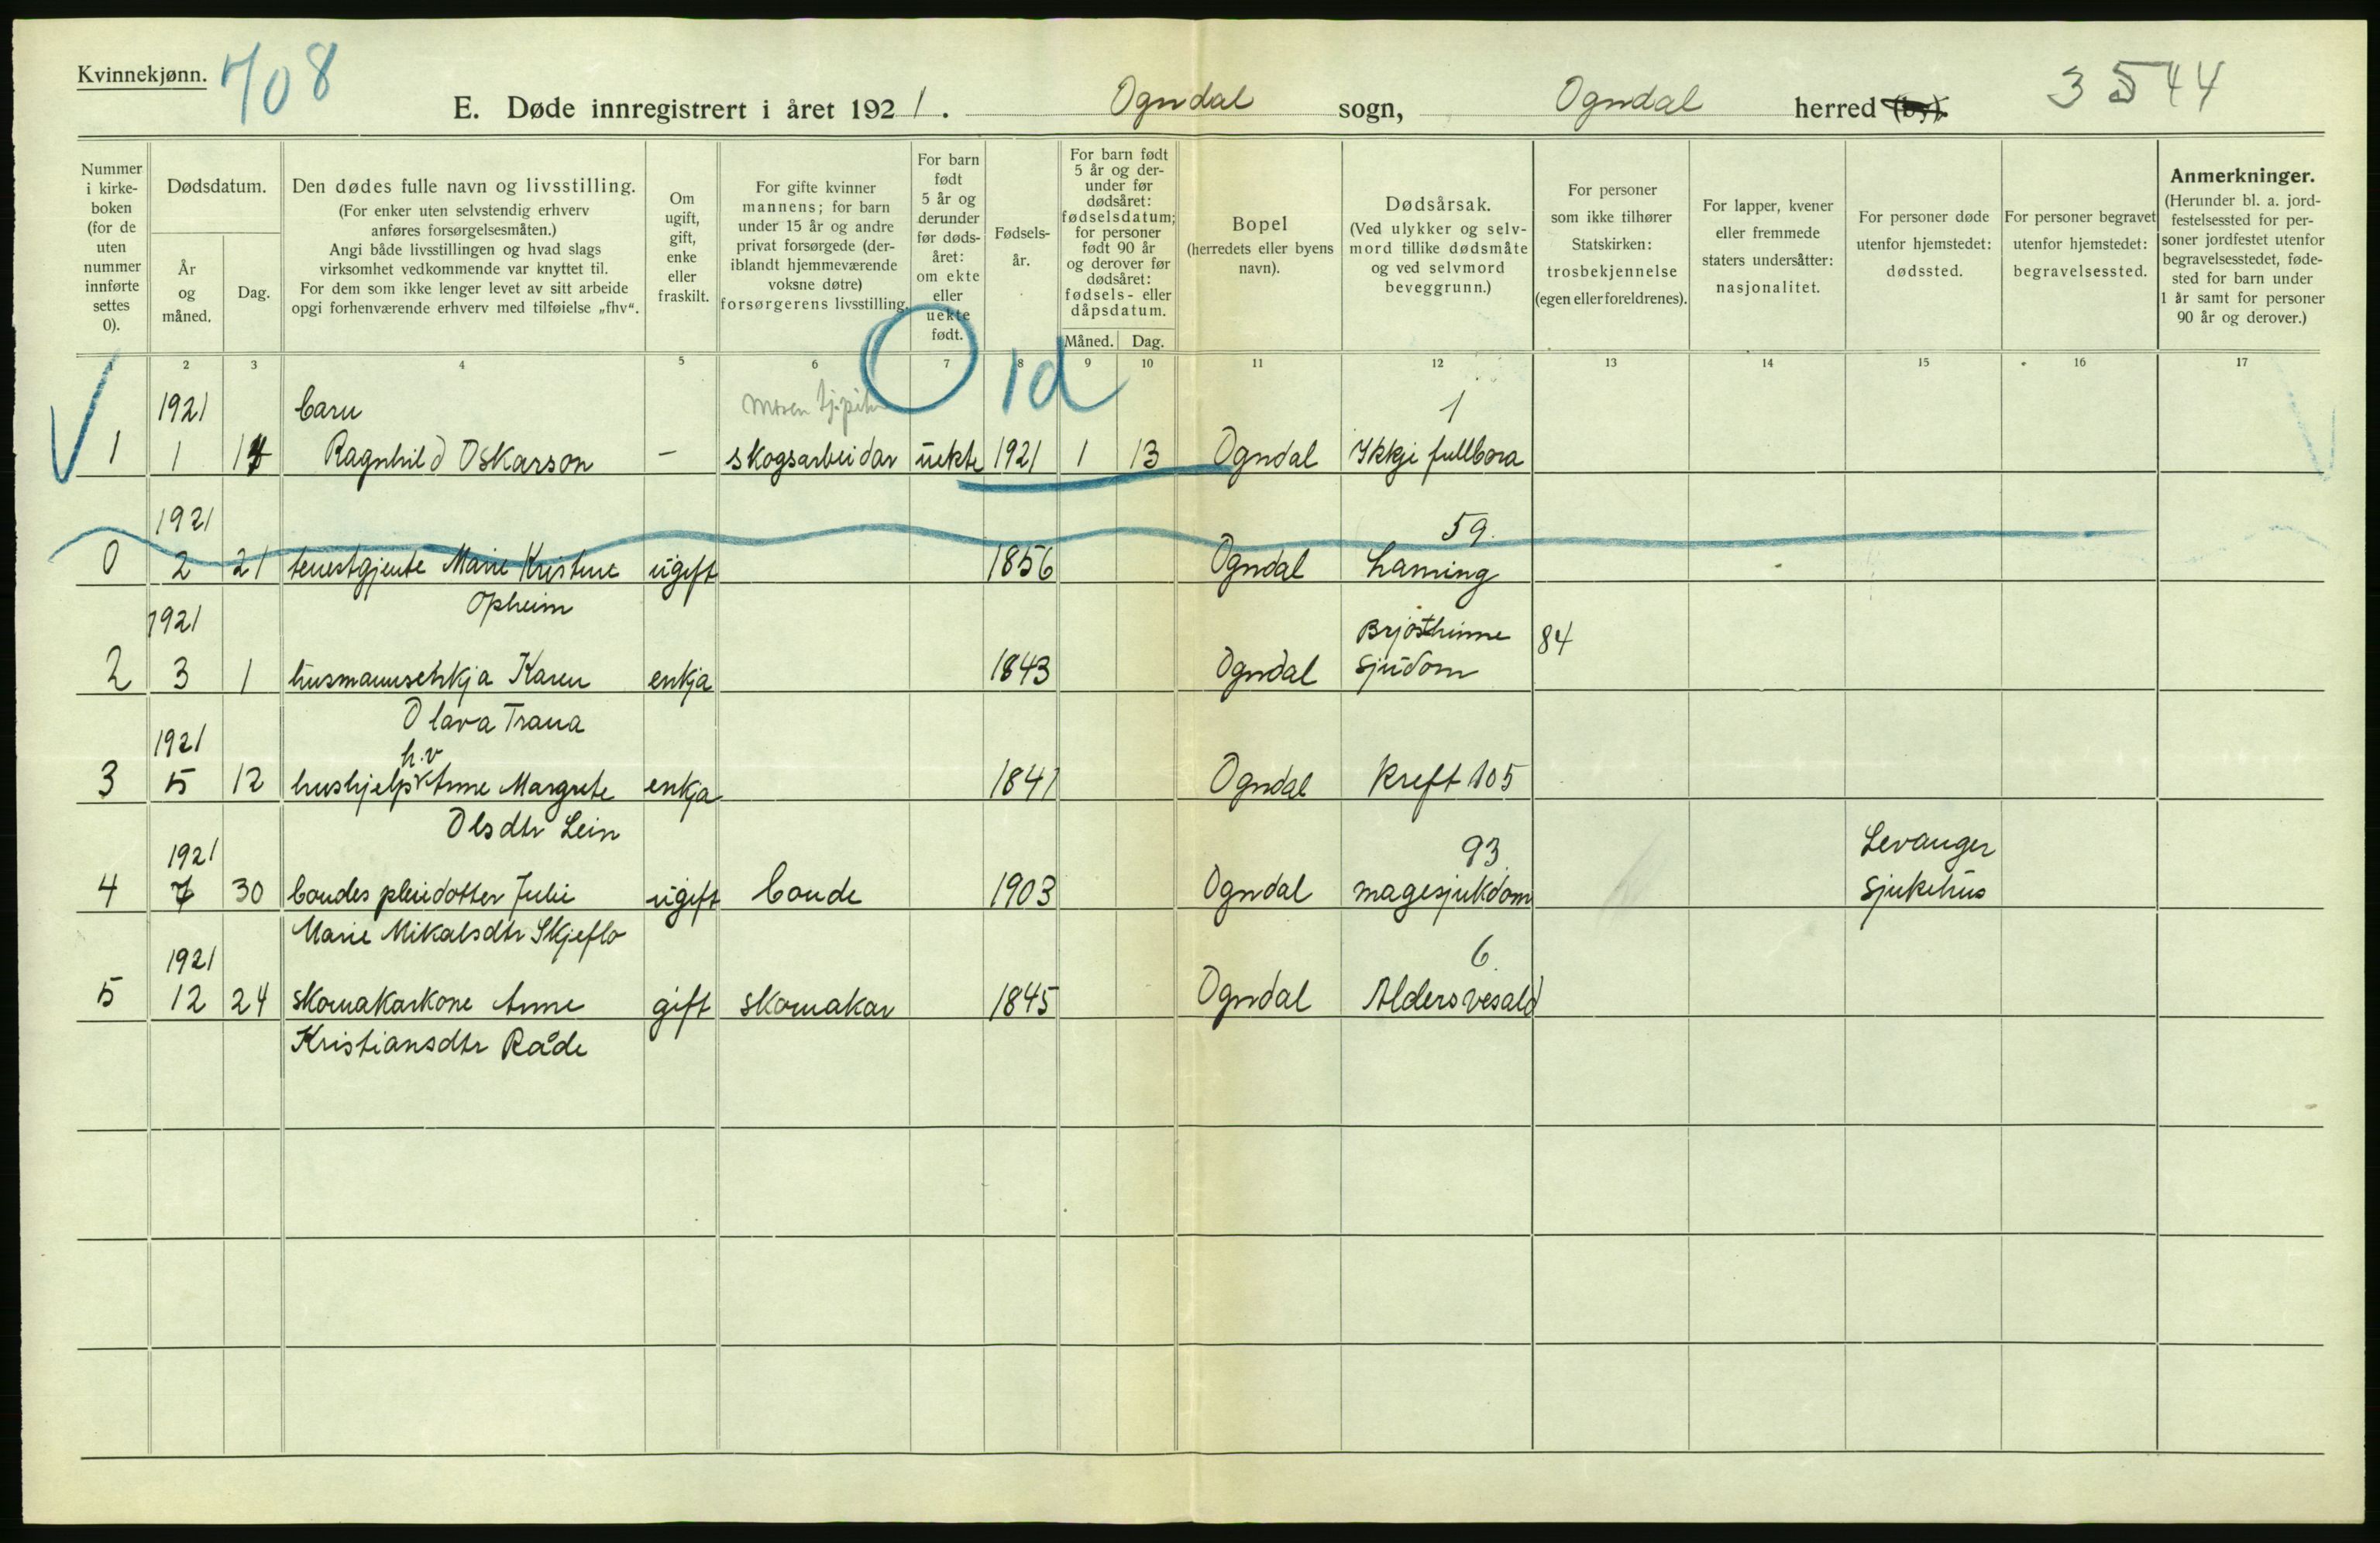 Kvinnekjønn. 708
E. Døde innregistrert i året 1921. Ogndal sogn, Ogndal herred (by). 3544
Nummer i kirke-boken (for de uten nummer innførte settes 0).
Dødsdatum.
År og måned.
Dag.
Den dødes fulle navn og livsstilling.
(For enker uten selvstendig erhverv
anføres forsørgelsesmåten.)
Angi både livsstillingen og hvad slags
virksomhet vedkommende var knyttet til.
For dem som ikke lenger levet av sitt arbeide
opgi forhenværende erhverv med tilføielse „fhv“.
Om ugift, gift, enke eller fraskilt.
For gifte kvinner
mannens; for barn
under 15 år og andre
privat forsørgede (der-
iblandt hjemmeværende
voksne døtre)
forsørgerens livsstilling.
For barn
født
5 år og
derunder
før døds-
året:
om ekte
eller
uekte
født.
Fødsels-
år.
For barn født
5 år og der-
under før
dødsåret:
fødselsdatum;
for personer
født 90 år
og derover før
dødsåret:
fødsels- eller
dåpsdatum.
Måned. Dag.
Bopel
(herredets eller byens
navn).
Dødsårsak.
(Ved ulykker og selv-
mord tillike dødsmåte
og ved selvmord
beveggrunn.)
For personer
som ikke tilhører
Statskirken:
trosbekjennelse
(egen eller foreldrenes).
For lapper, kvener
eller fremmede
staters undersåtter:
nasjonalitet.
For personer døde
utenfor hjemstedet:
dødssted.
For personer begravet
utenfor hjemstedet:
begravelsessted.
Anmerkninger.
(Herunder bl. a. jord-
festelsessted for per-
soner jordfestet utenfor
begravelsesstedet, føde-
sted for barn under
1 år samt for personer
90 år og derover.)
2 3 4 5 6 7 8 9 10 11 12 13 14 15 16 17
1d
1921 barn 1
1 1 14 Ragnhild Oskarson - skogsarbeidar uekte 1921 1 13 Ogndal Ikkje fullbora
1921 59.
0 2 21 tenestgjente Marie Kristine ugift 1856 Ogndal Lamning
Opheim
1921 Brjosthinne 84
2 3 1 husmannsenkja Karen enkja 1843 Ogndal sjudom
Olava Trana
1921 h.v
3 5 12 hushjelp Anne Margrete enkja 1841 Ogndal Kreft 105
Olsdtr Lein
1921 93. Levanger
4 7 30 bondes pleiedotter Julie ugift bonde 1903 Ogndal magesjukdom sjukehus
Marie Mikalsdtr Skjeflo
1921 6.
5 12 24 skomakarkone Anne gift skomakar 1845 Ogndal Aldersvesald
Kristiansdtr Råde